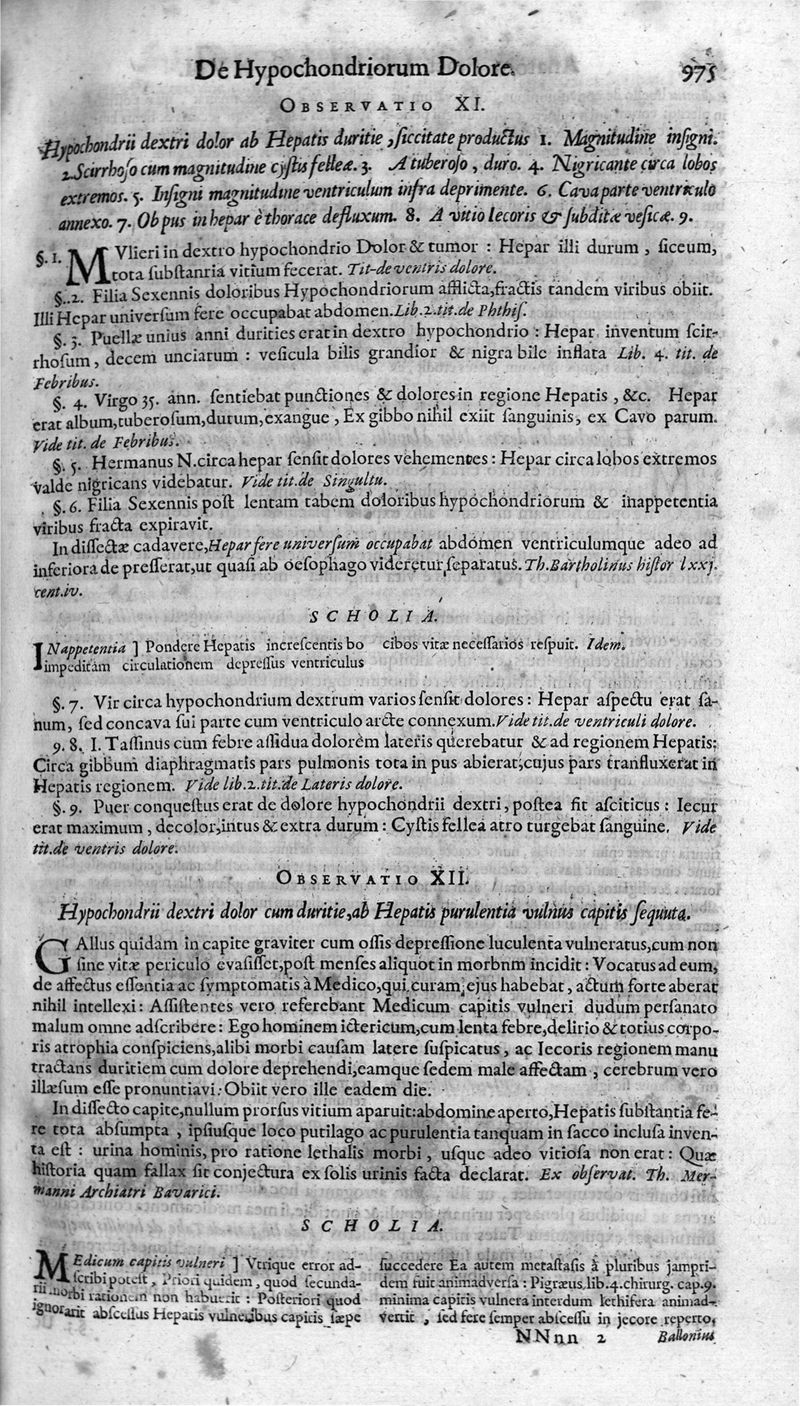 De Hypochondriorum Dolore. 975
OBSERVATIO XI.
Hypochondrii dextri dolor ab Hepatis duritie, siccitate productus 1. Magnitudine insigni.
2. Scirrhoso cum magnitudine cystis felleæ. 3. A tuberoso, duro. 4. Nigricante circa lobos
extremos. 5. Insigni magnitudine ventriculum infra deprimente. 6. Cava parte ventriculo
annexo. 7. Ob pus in hepar è thorace defluxum. 8. A vitio Iecoris & subditæ vesicæ. 9.
§. 1. MVlieri in dextro hypochondrio Dolor & tumor : Hepar illi durum, siccum,
tota substantia vitium fecerat. Tit-de ventris dolore.
§. 2. Filia Sexennis doloribus Hypochondriorum afflicta, fractis tandem viribus obiit.
Illi Hepar universum fere occupabat abdomen. Lib. 2. tit. de Phthisi.
§. 3. Puellæ unius anni durities erat in dextro hypochondrio : Hepar inventum scir-
rhosum, decem unciarum : vesicula bilis grandior & nigra bile inflata Lib. 4. tit. de
Febribus.
§. 4. Virgo 35. ann. sentiebat punctiones & dolores in regione Hepatis, &c. Hepar
erat album, tuberosum, durum, exangue, Ex gibbo nihil exiit sanguinis, ex Cavo parum.
Vide tit. de Febribus.
§. 5. Hermanus N. circa hepar sensit dolores vehementes : Hepar circa lobos extremos
valde nigricans videbatur. Vide tit. de Singultu.
§. 6. Filia Sexennis post lentam tabem doloribus hypochondriorum & inappetentia
viribus fracta expiravit.
In dissectæ cadavere, Hepar fere universum occupabat abdomen ventriculumque adeo ad
inferiora de presserat, ut quasi ab oesophago videretur separatus. Th. Bartholinus histor lxxj.
cent. iv.
SCHOLIA.
INappetentia ] Pondere Hepatis increscentis bo
impeditam circulationem depressus ventriculus
cibos vitæ necessarios respuit. Idem.
§. 7. Vir circa hypochondrium dextrum varios sensit dolores : Hepar aspectu erat sa-
num, sed concava sui parte cum ventriculo arcte connexum. Vide tit. de ventriculi dolore.
9. 8. I. Tassinus cum febre assidua dolorem lateris querebatur & ad regionem Hepatis :
Circa gibbum diaphragmatis pars pulmonis tota in pus abierat, cujus pars transfluxerat in
Hepatis regionem. Vide lib. 2. tit. de Lateris dolore.
§. 9. Puer conquestus erat de dolore hypochondrii dextri, postea fit asciticus : Iecur
erat maximum, decolor, intus & extra durum : Cystis fellea atro turgebat sanguine. Vide
tit. de ventris dolore.
OBSERVATIO XII.
Hypochondrii dextri dolor cum duritie, ab Hepatis purulentia vulnus capitis sequuta.
GAllus quidam in capite graviter cum ossis depressione luculenta vulneratus, cum non
sine vitæ periculo evasisset, post menses aliquot in morbnm incidit : Vocatus ad eum,
de affectus essentia ac symptomatis à Medico, qui curam ejus habebat, actum forte aberat
nihil intellexi : Assistentes vero referebant Medicum capitis vulneri dudum persanato
malum omne adscribere : Ego hominem ictericum, cum lenta febre, delirio & totius corpo-
ris atrophia conspiciens, alibi morbi causam latere suspicatus, ac Iecoris regionem manu
tractans duritiem cum dolore deprehendi, eamque sedem male affectam, cerebrum vero
illæsum esse pronuntiavi : Obiit vero ille eadem die.
In dissecto capite, nullum prorsus vitium aparuit : abdomine aperto, Hepatis substantia fe-
re tota absumpta, ipsiusque loco putilago ac purulentia tanquam in sacco inclusa inven-
ta est : urina hominis, pro ratione lethalis morbi, usque adeo vitiosa non erat : Quæ
historia quam fallax sit conjectura ex solis urinis facta declarat. Ex observat. Th. Mer-
manni Archiatri Bavarici.
SCHOLIA.
MEdicum capitis vulneri ] Vtrique error ad-
scribi potest, Priori quidem, quod secunda-
rii morbi rationem non habuerit : Posteriori quod
ignorarit abscessus Hepatis vulneribus capitis sæpe
succedere Ea autem metastasis à pluribus jampri-
dem fuit animadversa : Pigræus lib. 4. chirurg. cap. 9.
minima capitis vulnera interdum lethifera animad-
vertit, sed fere semper abscessu in jecore reperto,
NNnn 2 Ballonius